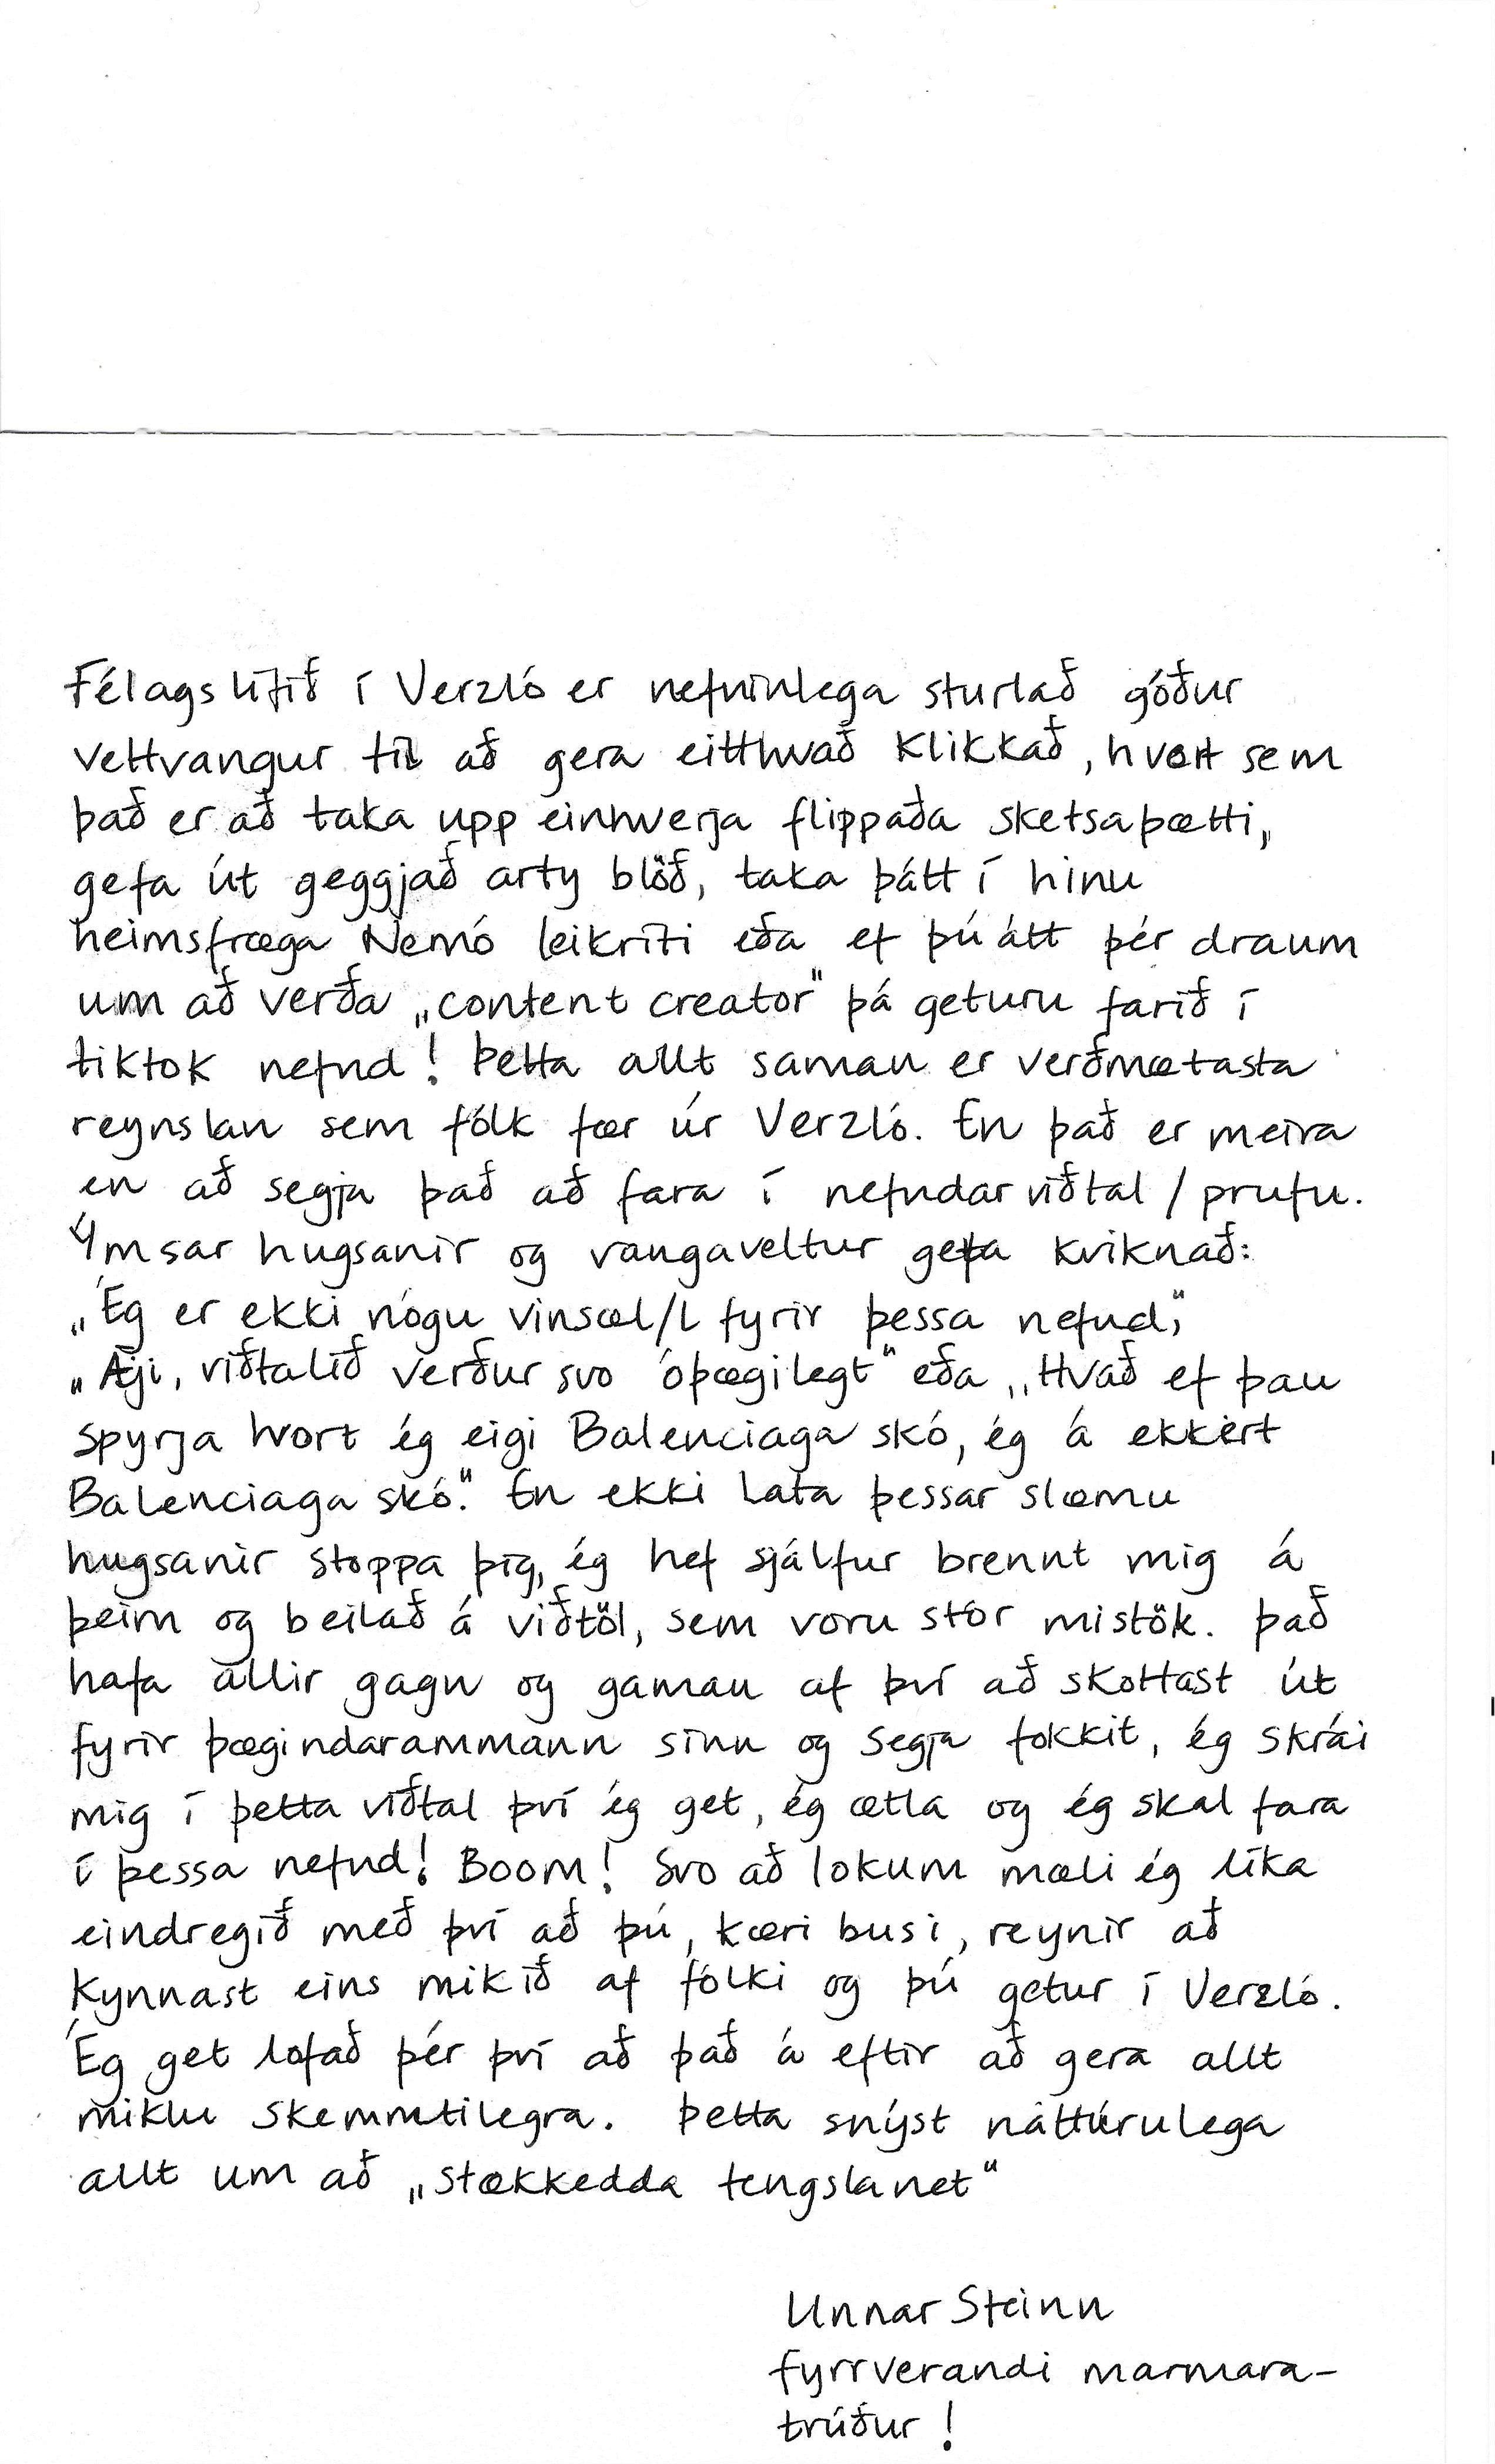 Félagslífið í Verzló er nefninlega sturlað góður
vettvangur til að gera eitthvað klikkað, hvort sem
það er að taka upp einhverja flippaða sketsaþætti,
gefa út geggjað arty blöð, taka þátt í hinu
heimsfræga Nemó leikriti eða ef þú átt þér draum
um að verða „content creator" þá geturu farið í
tiktok nefnd! Þetta allt saman er verðmætasta
reynslan sem fólk fær úr Verzló. En það er meira
en að segja það að fara í nefndarviðtal / prufu.
Ýmsar hugsanir og vangaveltur geta kviknað:
„Ég er ekki nógu vinsæl/l fyrir þessa nefnd",
„Æji, viðtalið verður svo óþægilegt" eða „Hvað ef þau
spyrja hvort ég eigi Balenciaga skó, ég á ekkert
Balenciaga skó". En ekki láta þessar slæmu
hugsanir stoppa þig, ég hef sjálfur brennt mig á
þeim og beilað á viðtöl, sem voru stór mistök. Það
hafa allir gagn og gaman af því að skottast út
fyrir þægindarammann sinn og segja fokkit, ég skrái
mig í þetta viðtal því ég get, ég ætla og ég skal fara
í þessa nefnd! Boom! Svo að lokum mæli ég líka
eindregið með því að þú, kæri busi, reynir að
kynnast eins mikið af fólki og þú getur í Verzló.
Ég get lofað þér því að það á eftir að gera allt
miklu skemmtilegra. Þetta snýst náttúrulega
allt um að „stækkedda tengslanet"
Unnar Steinn
fyrrverandi marmara-
trúður!